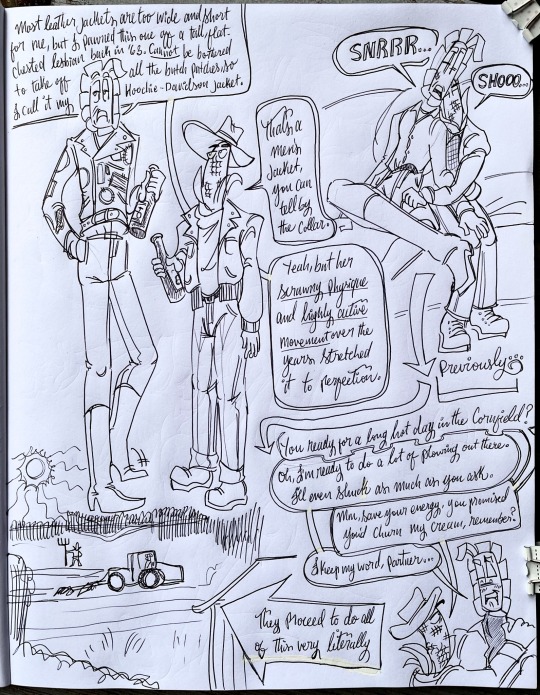 Most leather jackets are too wide and short
for me, but I pawned this one off a tall, flat-
chested lesbian back in '63. Cannot be bothered
to take off all the butch patches, so
I call it my Hoochie-Davidson Jacket.
that's a
mens
jacket,
you can
tell by
the collar.
Yeah, but her
scrawny physique
and highly active
movement over the
years stretched
it to perfection.
SNRRR...
SHOOO...
Previously
You ready for a long hot day in the Cornfield?
Oh, I'm ready to do a lot of plowing out there.
I'll even shuck as much as you ask.
Mm, save your energy, you promised
you'd churn my cream, remember?
I keep my word, partner...
They proceed to do all
of this very literally